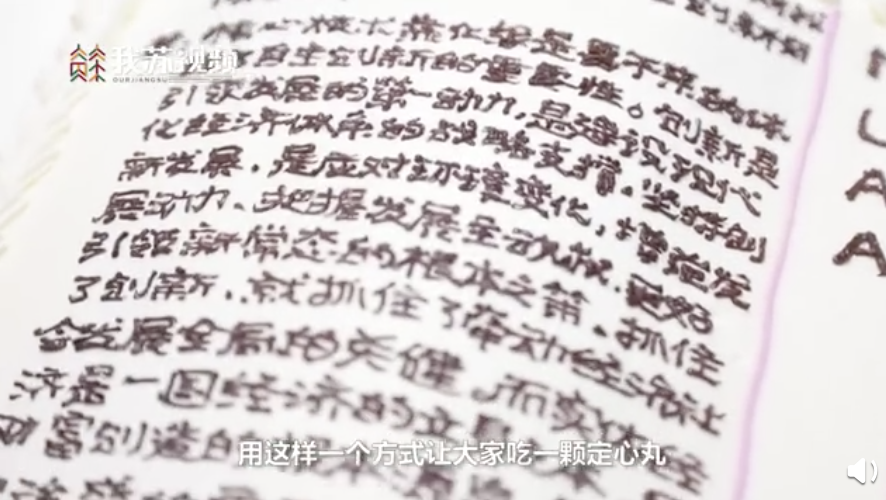 核心技术靠化缘是要不来的
自主创新的重要性。创新是
引领发展的第一动力,是建设现代
化经济体系的战略支撑。坚持创
新发展,是应对环境变化,增强发
展动力、把握发展主动权,更好
引领新常态的根本之策。抓住
了创新,就抓住了牵动经济社
会发展全局的关键。而实体经
济是一国经济的立
财富创造的
用这样一个方式让大家吃一颗定心丸
我苏视频
OURJIANGSU
U
A
A